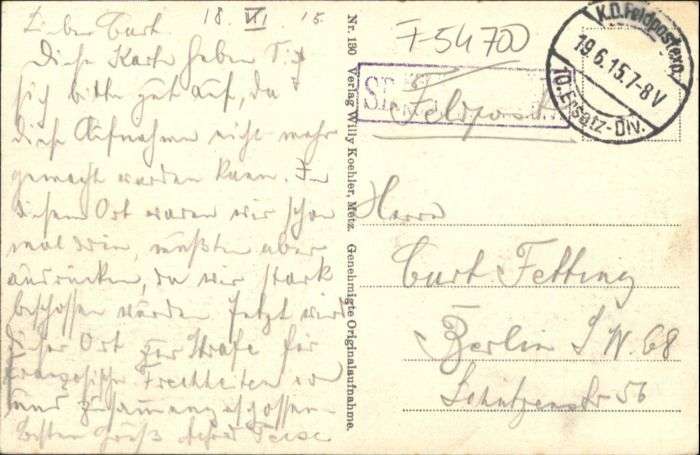 18. VI. 15.
Lieber Curt
Diese Karte heben Sie
sich bitte gut auf, da
diese Aufnahmen nicht mehr
gemacht werden kann. In
diesem Ort waren wir schon
mal drin, mußten aber
ausrücken, da wir stark
beschossen wurden. Jetzt wird
dieser Ort zur Strafe für
Französische Frechheiten
und zusammengeschossen
Besten Gruß
Nr. 130 Verlag Willy Koehler, Metz. Genehmigte Originalaufnahme.
F 54700
Feldpost
K.D. Feldpostexp.
19.6.15.7-8V
10. Ersatz-Div.
Herrn
Curt Fetting
Berlin S.W. 68
Schützenstr 56